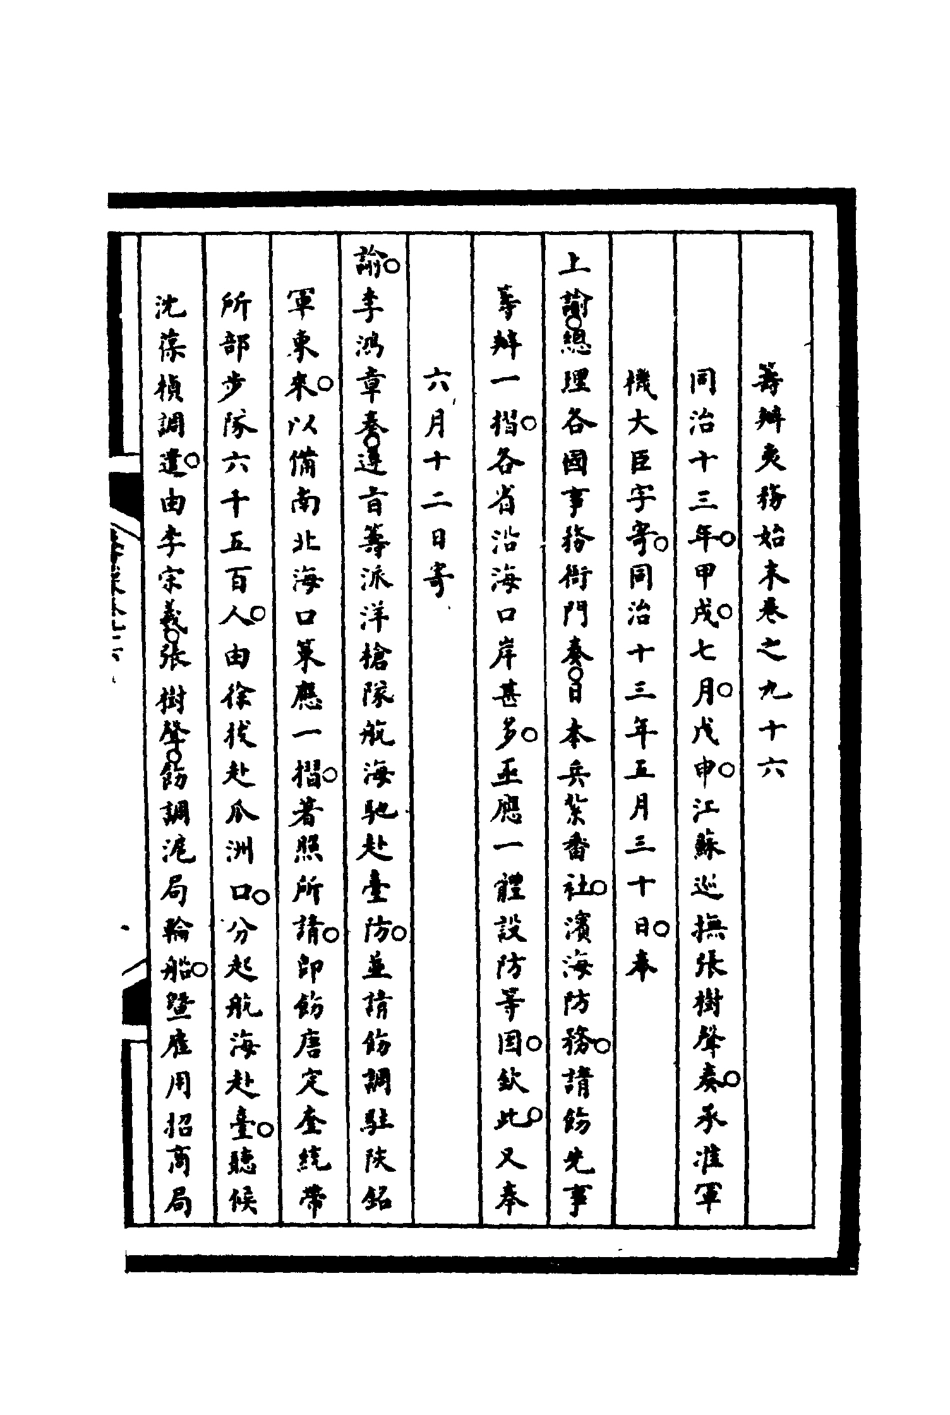 籌辦夷務始末卷之九十六
同治十三年。甲戌。七月。戊申。江蘇巡撫張樹聲奏。承准軍
機大臣字寄。同治十三年五月三十日。奉
上諭。總理各國事務衙門奏。日本兵紮番社。濱海防務。請飭先事
籌辦一摺。各省沿海口岸甚多。亟應一體設防等因。欽此。又奉
六月十二日寄
諭。李鴻章奏。遵旨籌派洋槍隊航海馳赴臺防。並請飭調駐陝銘
軍東來。以備南北海口策應一摺。著照所請。即飭唐定奎統帶
所部步隊六千五百人。由徐拔赴瓜洲口。分起航海赴臺。聽候
沈葆楨調遣。由李宗羲。張樹聲。飭調滬局輪船。暨雇用招商局